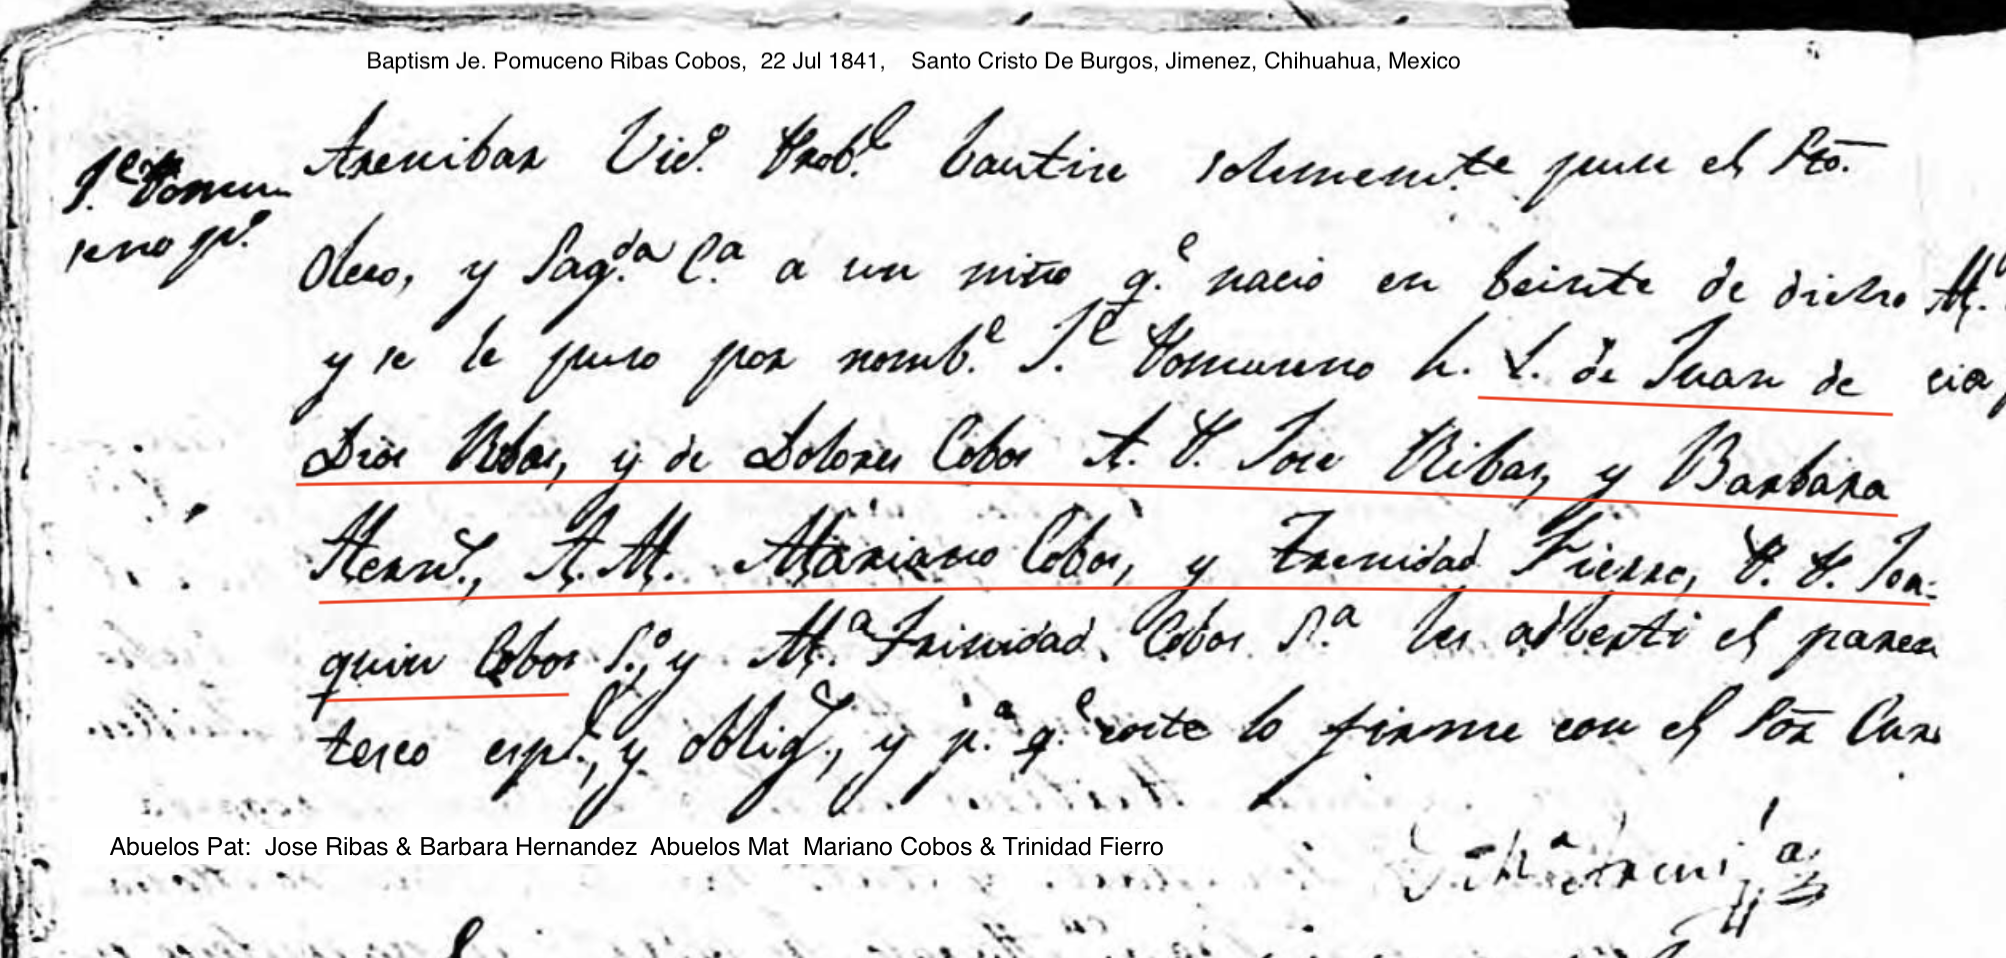 Baptism Je. Pomuceno Ribas Cobos, 22 Jul 1841, Santo Cristo De Burgos, Jimenez, Chihuahua, Mexico
Je. Pomu
seno pr.
Arenibar Vic.o Prob.l bautise solemnemte puse el Sto.
Oleo, y Sag.da C.a a un niño q.e nacio en beinte de dicho
y se le puso por nomb.e J.e Pomuseno h. L. de Juan de
Dios Ribas, y de Dolores Cobos A. P. Jose Ribas y Barbara
Hernz., A. M. Mariano Cobos, y Trenidad Fierro, P. P. Joa=
quin Cobos S.o, y M.a Trinidad Cobos S.a les adberti el paren
tesco espl., y oblig., y p.a q.e coste lo firme con el Sōr Cura
Abuelos Pat: Jose Ribas & Barbara Hernandez Abuelos Mat Mariano Cobos & Trinidad Fierro